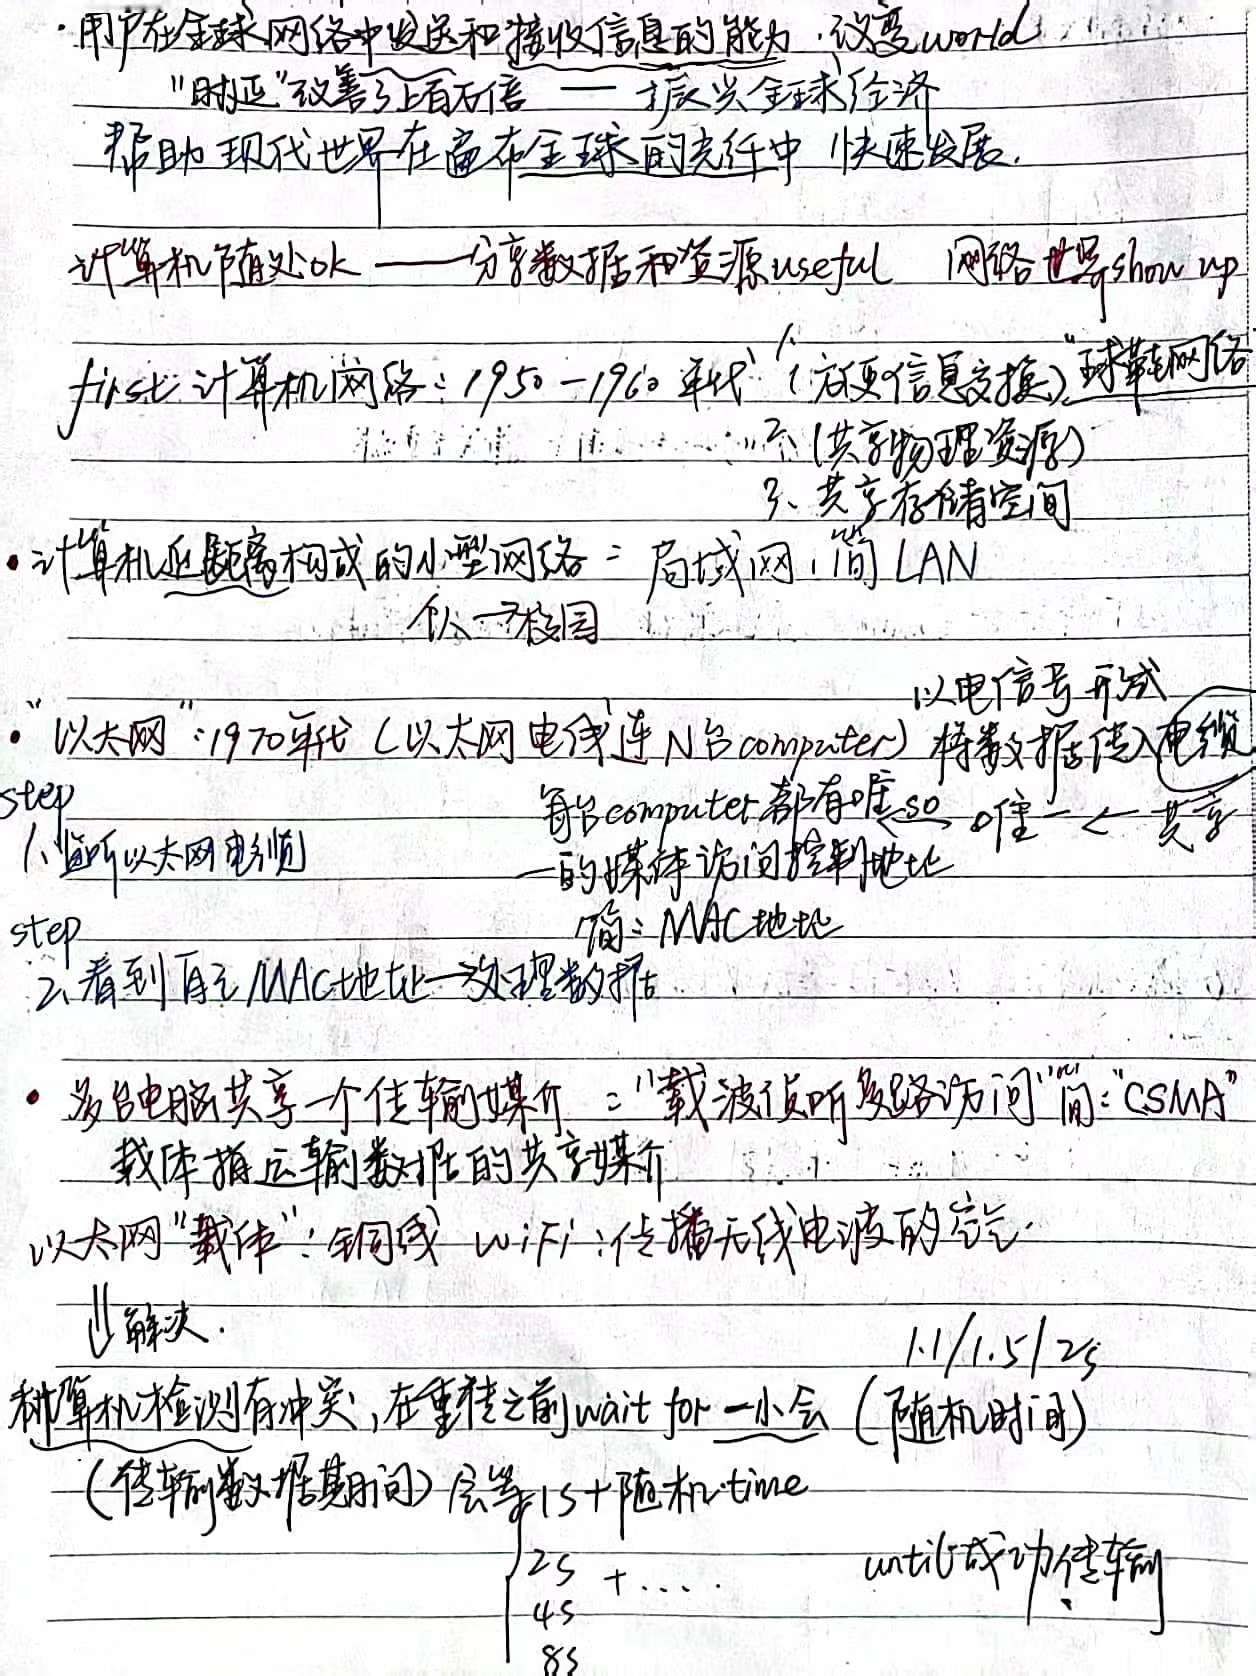 ·用户在全球网络中发送和接收信息的能力·改变world
"时延"改善了上百万倍 — 振兴全球经济
帮助现代世界在遍布全球的光纤中 快速发展.
计算机随处ok ——分享数据和资源useful 网络世界show up
first计算机网络:1950-1960年代 1、(方便信息交换)"球鞋网络"
2、(共享物理资源)
3、共享存储空间
·计算机近距离构成的小型网络=局域网,简LAN
以电信号形式
·"以太网":1970年代(以太网电线连N台computer)将数据传入电缆
step 每台computer都有唯 so 唯一 ← 共享
1、监听以太网电缆
一的媒体访问控制地址
step 简:MAC地址
2、看到自己MAC地址→处理数据
·多台电脑共享一个传输媒介 ="载波侦听多路访问"简:"CSMA"
载体指运输数据的共享媒介
以太网"载体":铜线 WiFi:传播无线电波的空气.
解决.
1.1/1.5/2s
计算机检测有冲突,在重传之前wait for 一小会(随机时间)
(传输数据期间)会等1s+随机time
2s +.... until成功传输
4s
8s